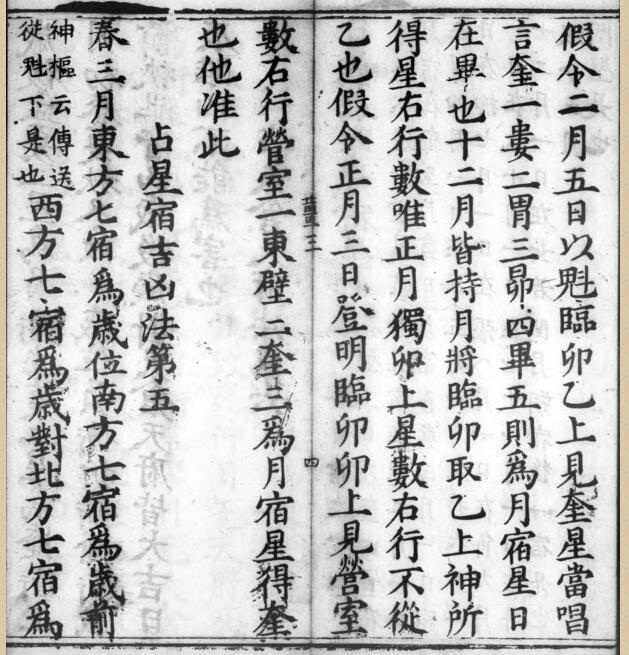 假令二月五日以魁臨卯乙上見奎星當唱
言奎一婁二胃三昴四畢五則爲月宿星日
在畢也十二月皆持月將臨卯取乙上神所
得星右行數唯正月獨卯上星數右行不從
乙也假令正月三日登明臨卯卯上見營室
四
數右行營室一東壁二奎三爲月宿星得奎
也他准此
占星宿吉凶法第五
春三月東方七宿爲歲位南方七宿爲歲前
神樞云傳送
從魁下是也
西方七宿爲歲對北方七宿爲